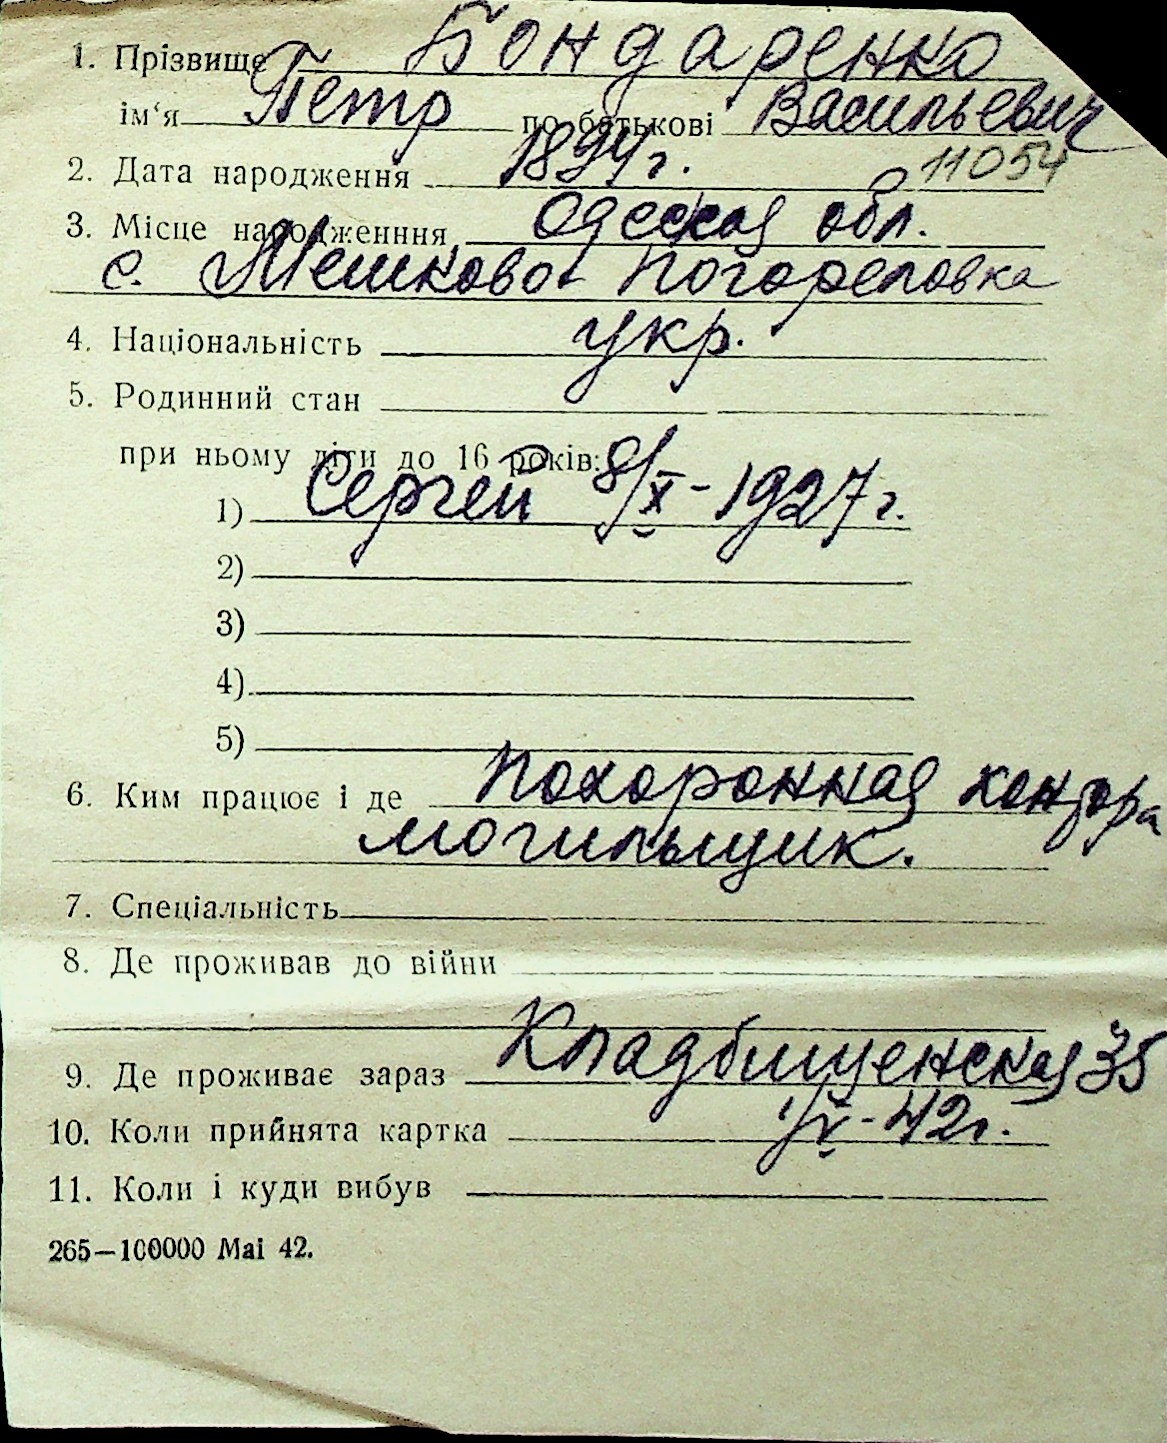 1. Прізвище Бондаренко
ім'я Петр по батькові Васильевич
2. Дата народження 1894 г. 11054
3. Місце народженння Одесская обл.
с. Мешково Погореловка
4. Національність укр.
5. Родинний стан
при ньому діти до 16 років:
1) Сергей 8/X - 1927 г.
2)
3)
4)
5)
6. Ким працює і де Похоронная контора
могильщик.
7. Спеціальність
8. Де проживав до війни
9. Де проживає зараз Кладбищенская 35
10. Коли прийнята картка 1/V - 42 г.
11. Коли і куди вибув
265—100000 Mai 42.